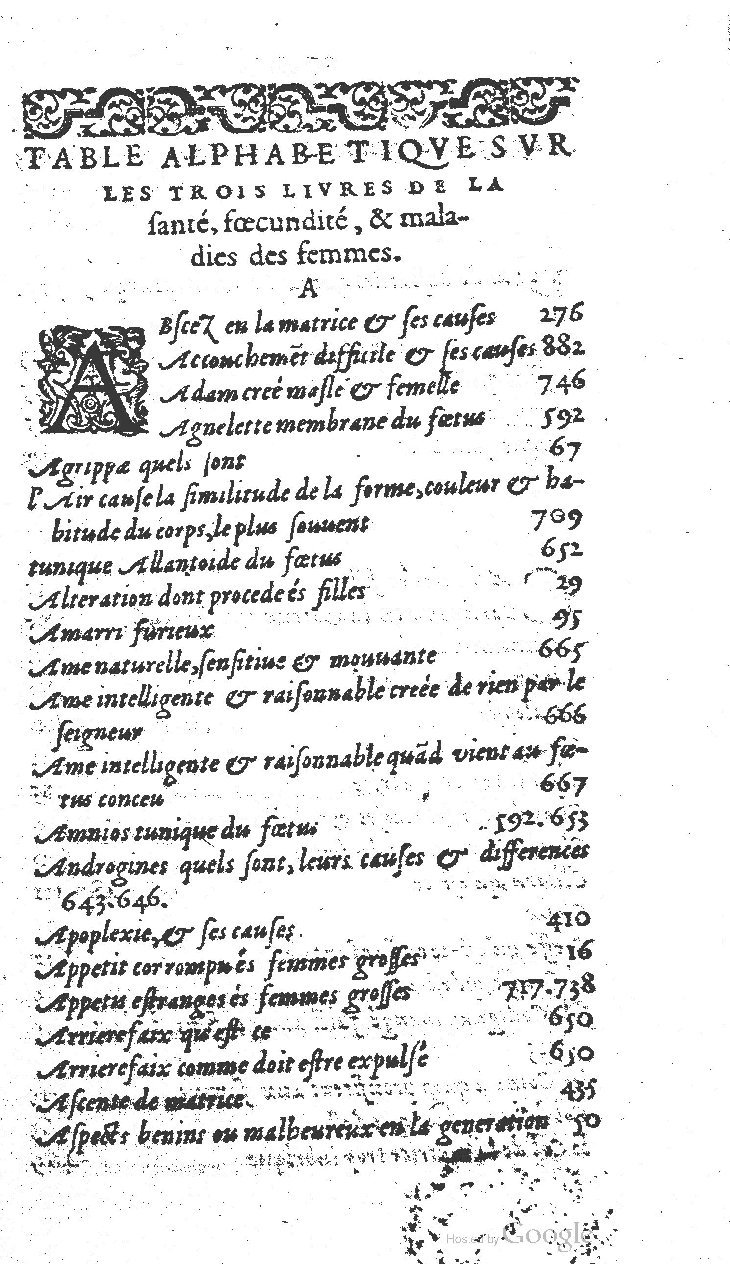 TABLE ALPHABETIQVE SVR
LES TROIS LIVRES DE LA
ſanté, fœcundité, & mala-
dies des femmes.
A
ABſcez en la matrice & ſes cauſes 276
Accouchemẽt difficile & ſes cauſes 882
Adam creé maſle & femelle 746
Agnelette membrane du fœtus 592
Agrippæ quels ſont 67
l'Air cauſe la ſimilitude de la forme, couleur & ha-
bitude du corps, le plus ſouuent 709
tunique Allantoide du fœtus 652
Alteration dont procede és filles 29
Amarri furieux 95
Ame naturelle, ſenſitiue & mouuante 665
Ame intelligente & raiſonnable creée de rien par le
ſeigneur 666
Ame intelligente & raiſonnable quãd vient au fœ-
tus conceu 667
Amnios tunique du fœtus 592.653
Androgines quels ſont, leurs cauſes & differences
643.646.
Apoplexie, & ſes cauſes. 410
Appetit corrompu és femmes groſſes 16
Appetit eſtranges és femmes groſſes 717.738
Arrierefaix qu'eſt ce 650
Arrierefaix comme doit eſtre expulſé 650
Aſcente de matrice. 435
Aſpects benins ou malheureux en la generation 50
Hosted by Google